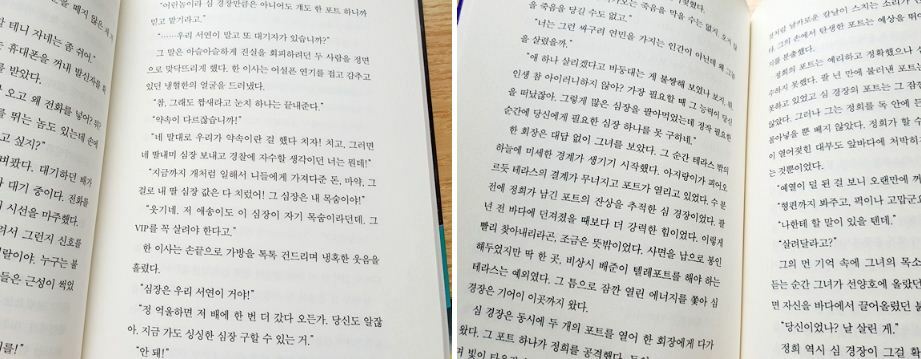 테니 자네는 좀 쉬어."
휴대폰을 꺼내 발신자를
를 받았다.
고 오고 왜 전화를 넣어?
를 뛰는 놈도 있는데 순에
고 싶지?"
대기하던 배가
가 대기 중이다. 전화를
시선을 마주했다.
려서 그런지 신호를
말이야. 누구는 불
들은 근성이 썩었
"어린놈이라 심 경장만큼은 아니어도 걔도 한 포트 하니까
믿고 맡기라고."
"……우리 서연이 말고 또 대기자가 있습니까?"
그 말은 아슬아슬하게 진실을 회피하려던 두 사람을 정면
으로 맞닥뜨리게 했다. 한 이사는 어설픈 연기를 접고 감추고
있던 냉혈한의 얼굴을 드러냈다.
"참, 그래도 짭새라고 눈치 하나는 끝내준다."
"약속이 다르잖습니까!"
"네 딸대로 우리가 약속이란 걸 했다 치자! 치고, 그러면
네 딸내미 심장 보내고 경찰에 자수할 생각이던 너는 뭔데!"
"지금까지 개처럼 일해서 니들에게 가져다준 돈, 마약, 그
걸로 내 딸 심장 값은 다 치렀어! 그 심장은 내 목숨이야!"
"웃기네. 저 애송이도 이 심장이 자기 목숨이라던데. 그
VIP를 꼭 살려야 한다고."
한 이사는 손끝으로 가방을 톡톡 건드리며 냉혹한 웃음을
흘렸다.
"심장은 우리 서연이 거야!"
"정 억울하면 저 배에 한 번 더 갔다 오든가. 당신도 알잖
아. 지금 가도 싱싱한 심장 구할 수 있는 거."
"안 돼!"
죽음을 막을 수는 없
을 죽음을 당길 수도 없고."
"너는 그런 싸구려 연민을 가지는 인간이 아닌데 왜 그놈
을 살렸을까."
"애 하나 살리겠다고 바둥대는 게 불쌍해 보였나 보지. 뭐,
인생 참 아이러니하지 않아? 가장 필요할 때 그 능력이 당신
을 떠났잖아. 그렇게 많은 심장을 팔아먹었는데 정작 필요한
순간에 당신에게 필요한 심장 하나를 못 구하네."
한 회장은 대답 없이 그녀를 보았다. 그 순간 테라스 밖의
하늘에 미세한 경계가 생기기 시작했다. 아지랑이가 피어오
르듯 테라스의 경계가 무너지고 포트가 열리고 있었다. 수 분
전에 정희가 남긴 포트의 잔상을 추적한 심 경장이었다. 팔
년 전 바다에 던져졌을 때보다 더 강력한 힘이었다. 이렇게
빨리 찾아내리라곤, 조금은 뜻밖이었다. 사면을 납으로 봉인
해두었지만 딱 한 곳, 비상시 배준이 텔레포트를 해야 하는
테라스는 예외였다. 그 틈으로 잠깐 열린 에너지를 쫓아 심
경장은 기어이 이곳까지 왔다.
심 경장은 동시에 두 개의 포트를 열어 한 회장에게 다가
왔다. 그 포트 하나가 정희를 공격했다.
날카로운 칼날이 스치는 소리가
그의 손에서 탄생한 포트는 예상을 뛰어
를 분출했다.
정희의 포트는 예리하고 정확했으나
수하지 못했다. 팔 년 만에 불러낸 포트는
못하고 있었고 심 경장의 포트는 그 잠깐
았다. 그러나 그는 정희를 독 안에 든
몰아넣을 뿐 해치지 않았다. 정희가 할 수
이 열어젖힌 대부도 앞바다에 처박히
는 것뿐이었다.
"혜열이 덜 된 걸 보니 오랜만에 꺼
"형편까지 봐주고, 퍽이나 고맙군요
"나한테 할 말이 있을 텐데."
"살려달라고?"
그의 먼 기억 속에 그녀의 목소
듣는 순간 그녀가 선양호에 올랐던
면 자신을 바다에서 끌어올렸던
"당신이었나? 날 살린 게."
정희 역시 심 경장이 그걸